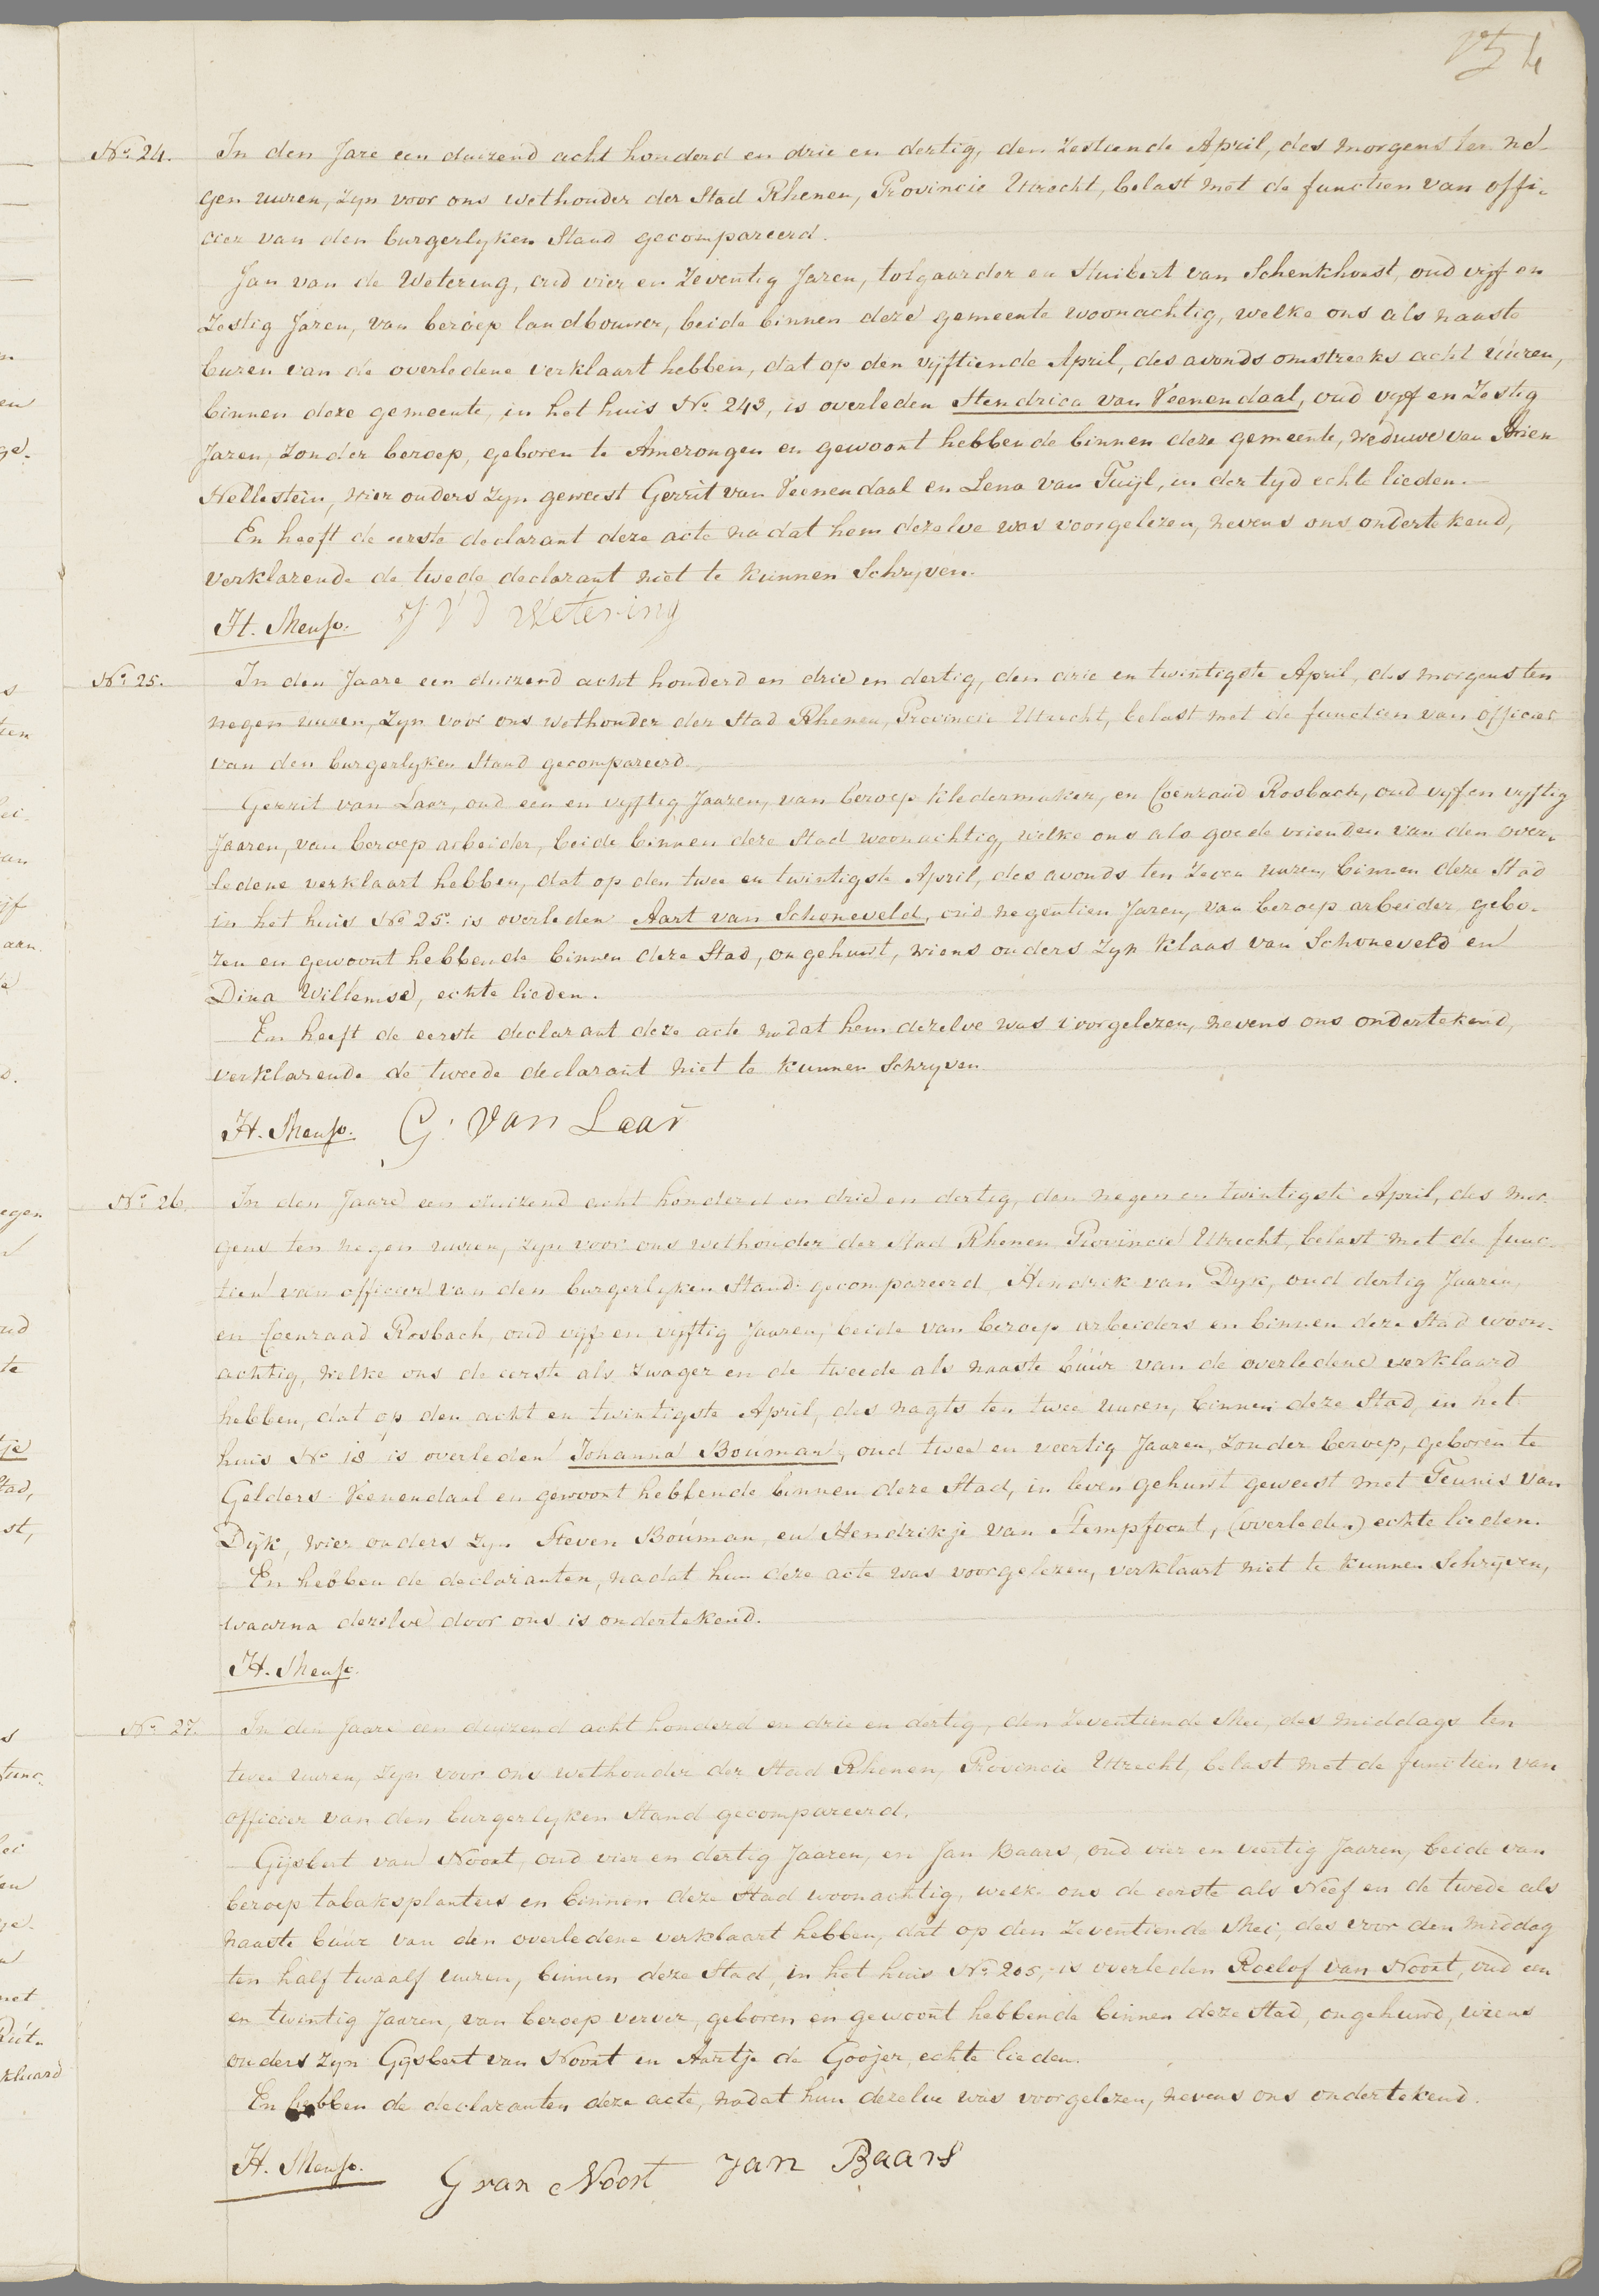 No. 24. In den Jare een duizend acht honderd en drie en dertig, den Zestiende April, des morgens ten ne-
gen uuren, zyn voor ons wethouder der Stad Rhenen, Provincie Utrecht, belast met de functien van offi-
cier van den burgerlyken Stand gecompareerd.
Jan van de Wetering, oud vier en Zeventig Jaren, tolgaarder en Huibert van Schenkhorst, oud vijf en
Zestig Jaren, van beroep landbouwer, beide binnen deze gemeente woonachtig, welke ons als naaste
buren van de overledene verklaart hebben, dat op den vijftiende April, des avonds omstreeks acht uuren,
binnen deze gemeente, in het huis No. 243, is overleden Hendrica van Veenendaal, oud vijf en Zestig
Jaren, zonder beroep, geboren te Amerongen en gewoont hebbende binnen deze gemeente, Weduwe van Arien
Nellestein, wier ouders zyn geweest Gerrit van Veenendaal en Lena van Tuijl, in der tyd echte lieden.
En heeft de eerste declarant deze acte na dat hem dezelve was voorgelezen, nevens ons ondertekend,
verklarende de twede declarant niet te kunnen Schryven.
H. Menso. J V D Wetering
No. 25. In den Jaare een duizend acht honderd en drie en dertig, den drie en twintigste April, des morgens ten
negen uuren, zyn voor ons wethouder der Stad Rhenen, Provincie Utrecht, belast met de functien van officier
van den burgerlyken Stand gecompareerd.
Gerrit van Laar, oud een en vyftig Jaaren, van beroep kledermaker, en Coenraad Rosbach, oud vyf en vyftig
Jaaren, van beroep arbeider, beide binnen deze Stad woonachtig, welke ons als goede vrienden van den over-
ledene verklaart hebben, dat op den twee en twintigste April, des avonds ten Zeven uuren, binnen deze Stad
in het huis No. 25. is overleden Aart van Schoneveld, oud negentien Jaren, van beroep arbeider, gebo-
ren en gewoont hebbende binnen deze Stad, ongehuwt, wiens ouders zyn Klaas van Schoneveld en
Dina Willemse, echte lieden.
En heeft de eerste declarant deze acte nadat hem dezelve was voorgelezen, nevens ons ondertekend,
verklarende de tweede declarant niet te kunnen Schryven
H. Menso. G. van Laar
No. 26. In den Jaare een duizend acht honderd en drie en dertig, den negen en twintigste April, des mor-
gens ten negen uuren, zyn voor ons wethouder der Stad Rhenen, Provincie Utrecht, belast met de func-
tien van officier van den burgerlyken Stand gecompareerd, Hendrik van Dyk, oud dertig Jaaren,
en Coenraad Rosbach, oud vijf en vijftig Jaaren, beide van beroep arbeiders en binnen deze Stad woon-
achtig, welke ons de eerste als zwager en de tweede als naaste buur van de overledene verklaard
hebben, dat op den acht en twintigste April, des nagts ten twee uuren, binnen deze Stad, in het
huis No. 18 is overleden Johanna Bouman, oud twee en veertig Jaaren, zonder beroep, geboren te
Gelders Veenendaal en gewoont hebbende binnen deze Stad, in leven gehuwt geweest met Teunis van
Dijk, wier ouders zyn Steven Bouman en Hendrikje van Stempfoort, (overleden) echte lieden.
En hebben de declaranten, nadat hun deze acte was voorgelezen, verklaart niet te kunnen Schrijven,
waarna dezelve door ons is ondertekend.
H. Menso.
No. 27. In den Jaare een duizend acht honderd en drie en dertig, den Zeventiende Mei, des middags ten
twee uuren, Zyn voor ons wethouder der Stad Rhenen, Provincie Utrecht, belast met de functien van
officier van den burgerlyken Stand gecompareerd,
Gijsbert van Noort, oud vier en dertig Jaaren, en Jan Baars, oud vier en veertig Jaaren, beide van
beroep tabaksplanters en binnen deze Stad woonachtig, welke ons de eerste als Neef en de twede als
naaste buur van den overledene verklaart hebben, dat op den Zeventiende Mei, des voor den middag
ten half twaalf uuren, binnen deze Stad, in het huis No. 205, is overleden Roelof van Noort, oud een
en twintig Jaaren, van beroep verver, geboren en gewoont hebbende binnen deze Stad, ongehuwd, wiens
ouders zyn Gijsbert van Noort en Aartje de Gooijer, echte lieden.
En hebben de declaranten deze acte, nadat hun dezelve was voorgelezen, nevens ons ondertekend.
H. Menso. G van Noort Jan Baars